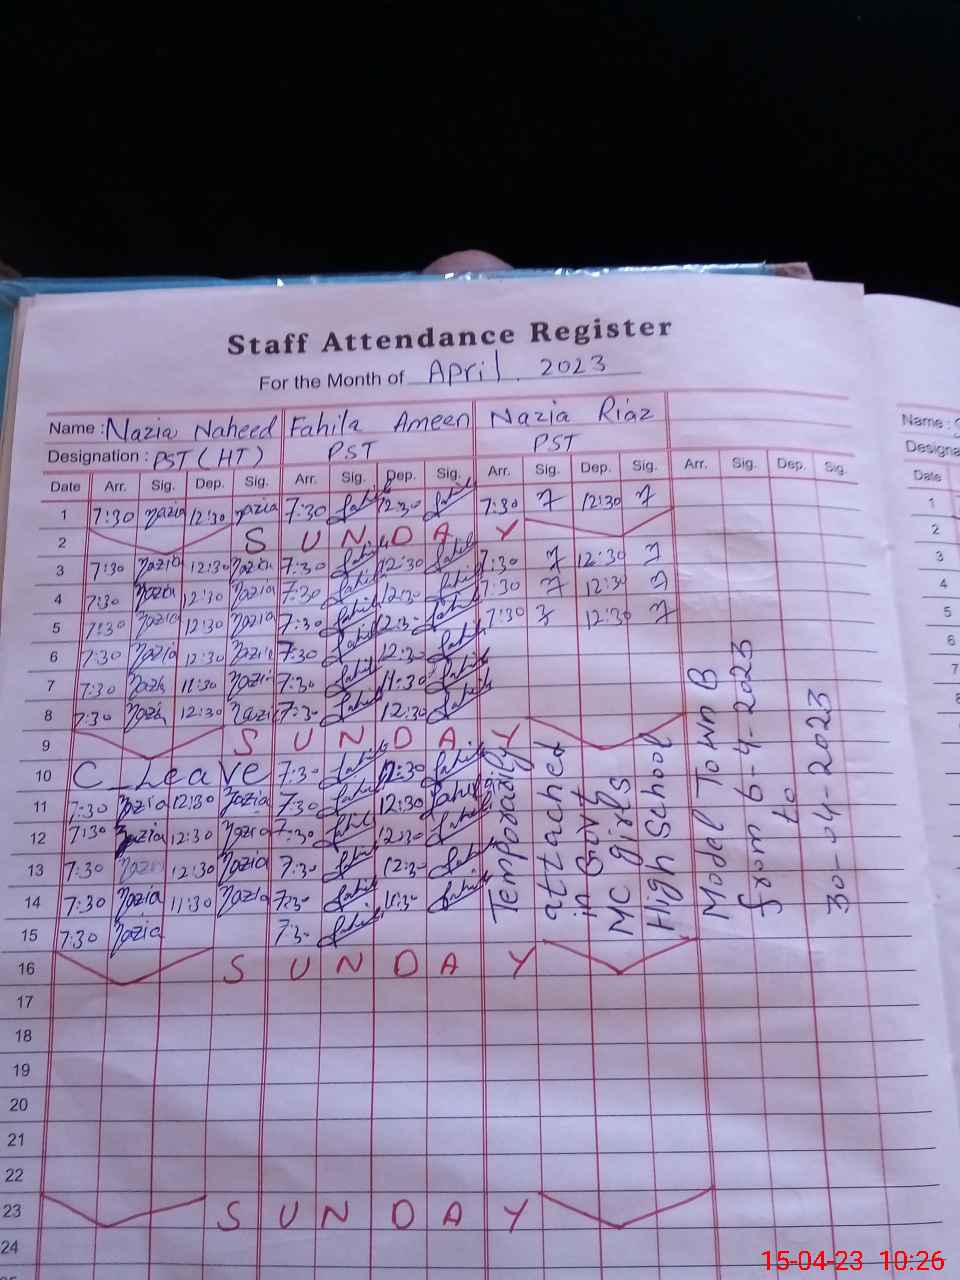 Staff Attendance Register
For the Month of April. 2023
Name : Nazia Naheed Fahila Ameen Nazia Riaz
Designation : PST (HT) PST PST
Date Arr. Sig. Dep. Sig. Arr. Sig. Dep. Sig. Arr. Sig. Dep. Sig. Arr. Sig. Dep. Sig.
1 7:30 Nazia 12:30 Nazia 7:30 12:30 7:30 12:30
2 SUNDAY
3 7:30 Nazia 12:30 Nazia 7:30 12:30 7:30 12:30
4 7:30 Nazia 12:30 Nazia 7:30 12:30 7:30 12:30
5 7:30 Nazia 12:30 Nazia 7:30 12:30 7:30 12:30
6 7:30 Nazia 12:30 Nazia 7:30 12:30
7 7:30 Nazia 11:30 Nazia 7:30 11:30
8 7:30 Nazia 12:30 Nazia 7:30 12:30
9 SUNDAY
10 C_Leave 7:30 12:30
11 7:30 Nazia 12:30 Nazia 7:30 12:30
12 7:30 Nazia 12:30 Nazia 7:30 12:30
13 7:30 Nazia 12:30 Nazia 7:30 12:30
14 7:30 Nazia 11:30 Nazia 7:30 11:30
15 7:30 Nazia 7:30
Temporadily
attached
in Govt
MC girls
High School
Model Town B
from 6-4-2023
to
30-04-2023
16 SUNDAY
17
18
19
20
21
22
23 SUNDAY
24
Name :
Designa
Date
1
2
3
4
5
7
8
15-04-23 10:26